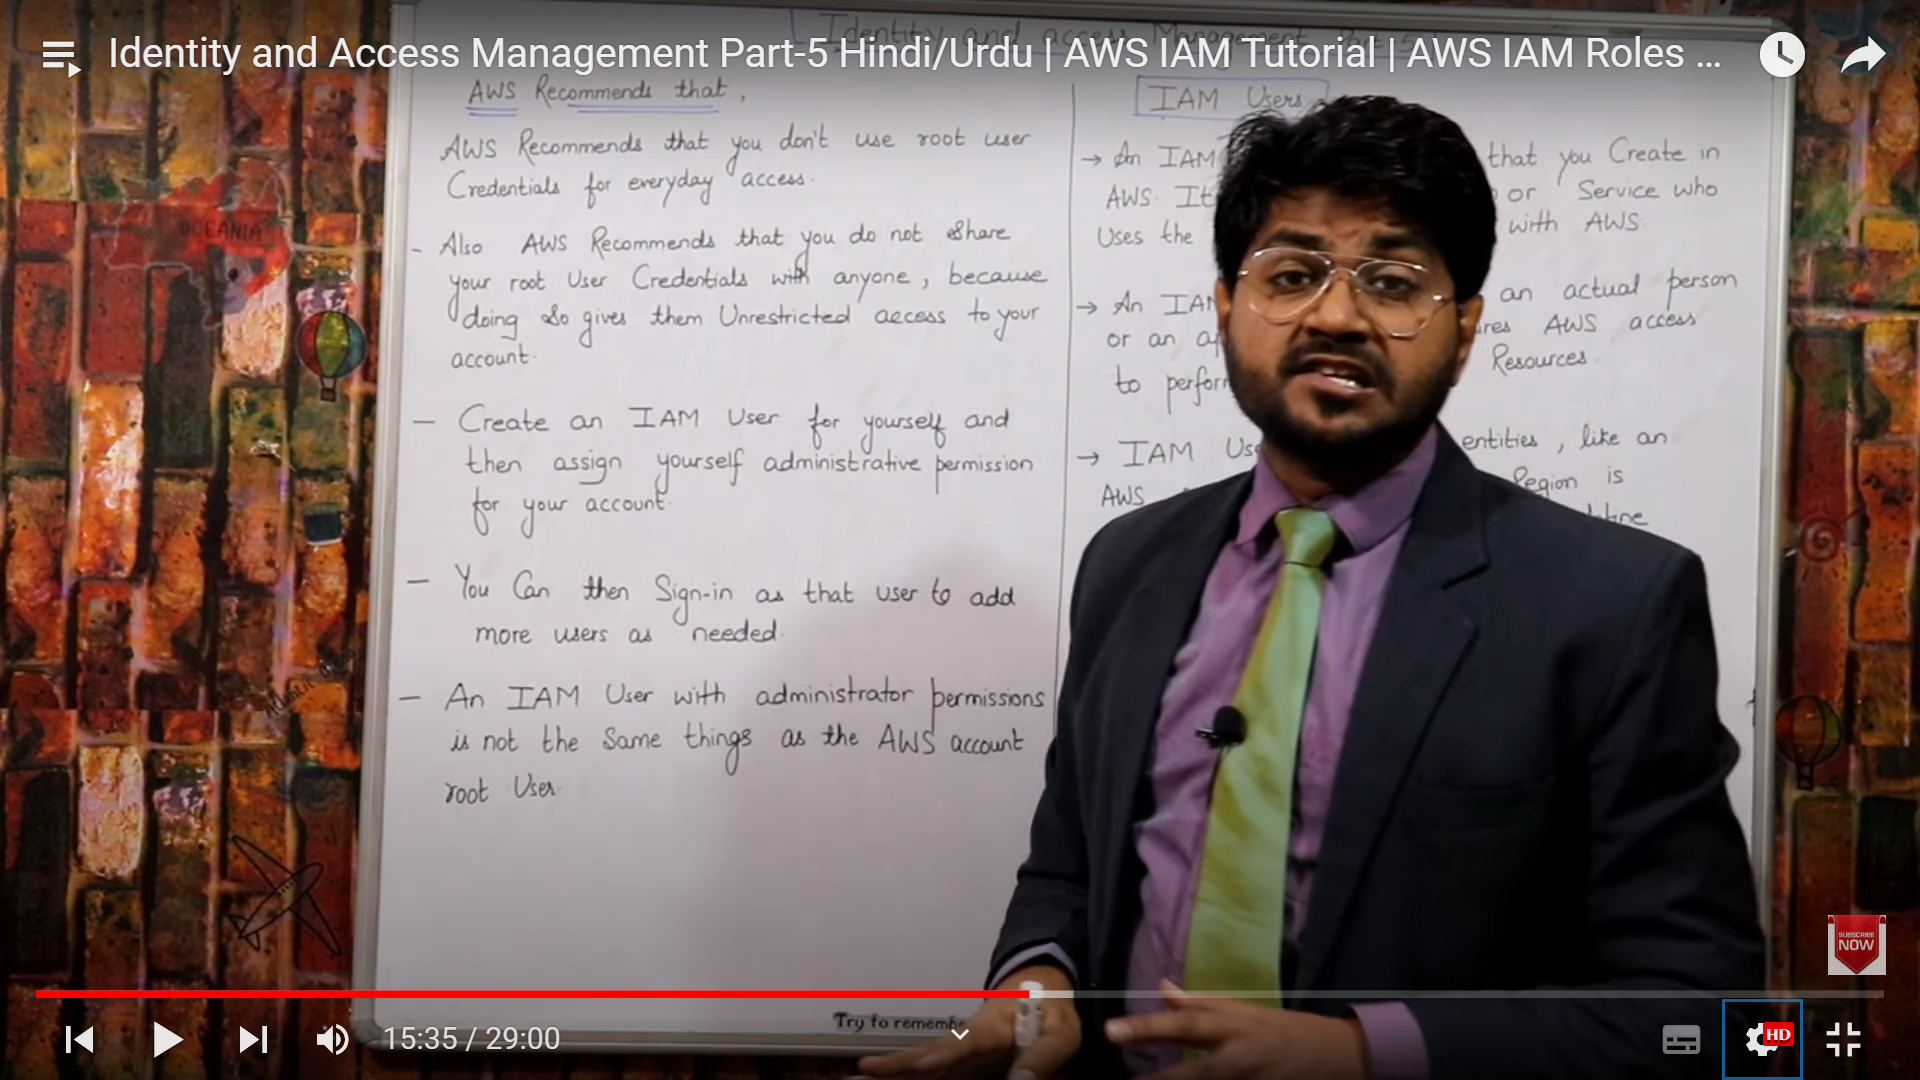 Identity and Access Management Part-5 Hindi/Urdu | AWS IAM Tutorial | AWS IAM Roles ...
Identity and access Management
AWS Recommends that,
AWS Recommends that you don't use root user
Credentials for everyday access.
- Also AWS Recommends that you do not Share
your root User Credentials with anyone, because
doing so gives them Unrestricted access to your
account.
- Create an IAM User for yourself and
then assign yourself administrative permission
for your account.
- You Can then Sign-in as that user to add
more users as needed.
- An IAM User with administrator permissions
is not the Same things as the AWS account
root User.
IAM Users
→ An IAM that you Create in
AWS. It or Service who
Uses the with AWS.
→ An an actual person
or an AWS access
to Resources.
→ IAM entities, like an
AWS Region is
OCEANIA
Try to
SUBSCRIBE
NOW
15:35 / 29:00
HD